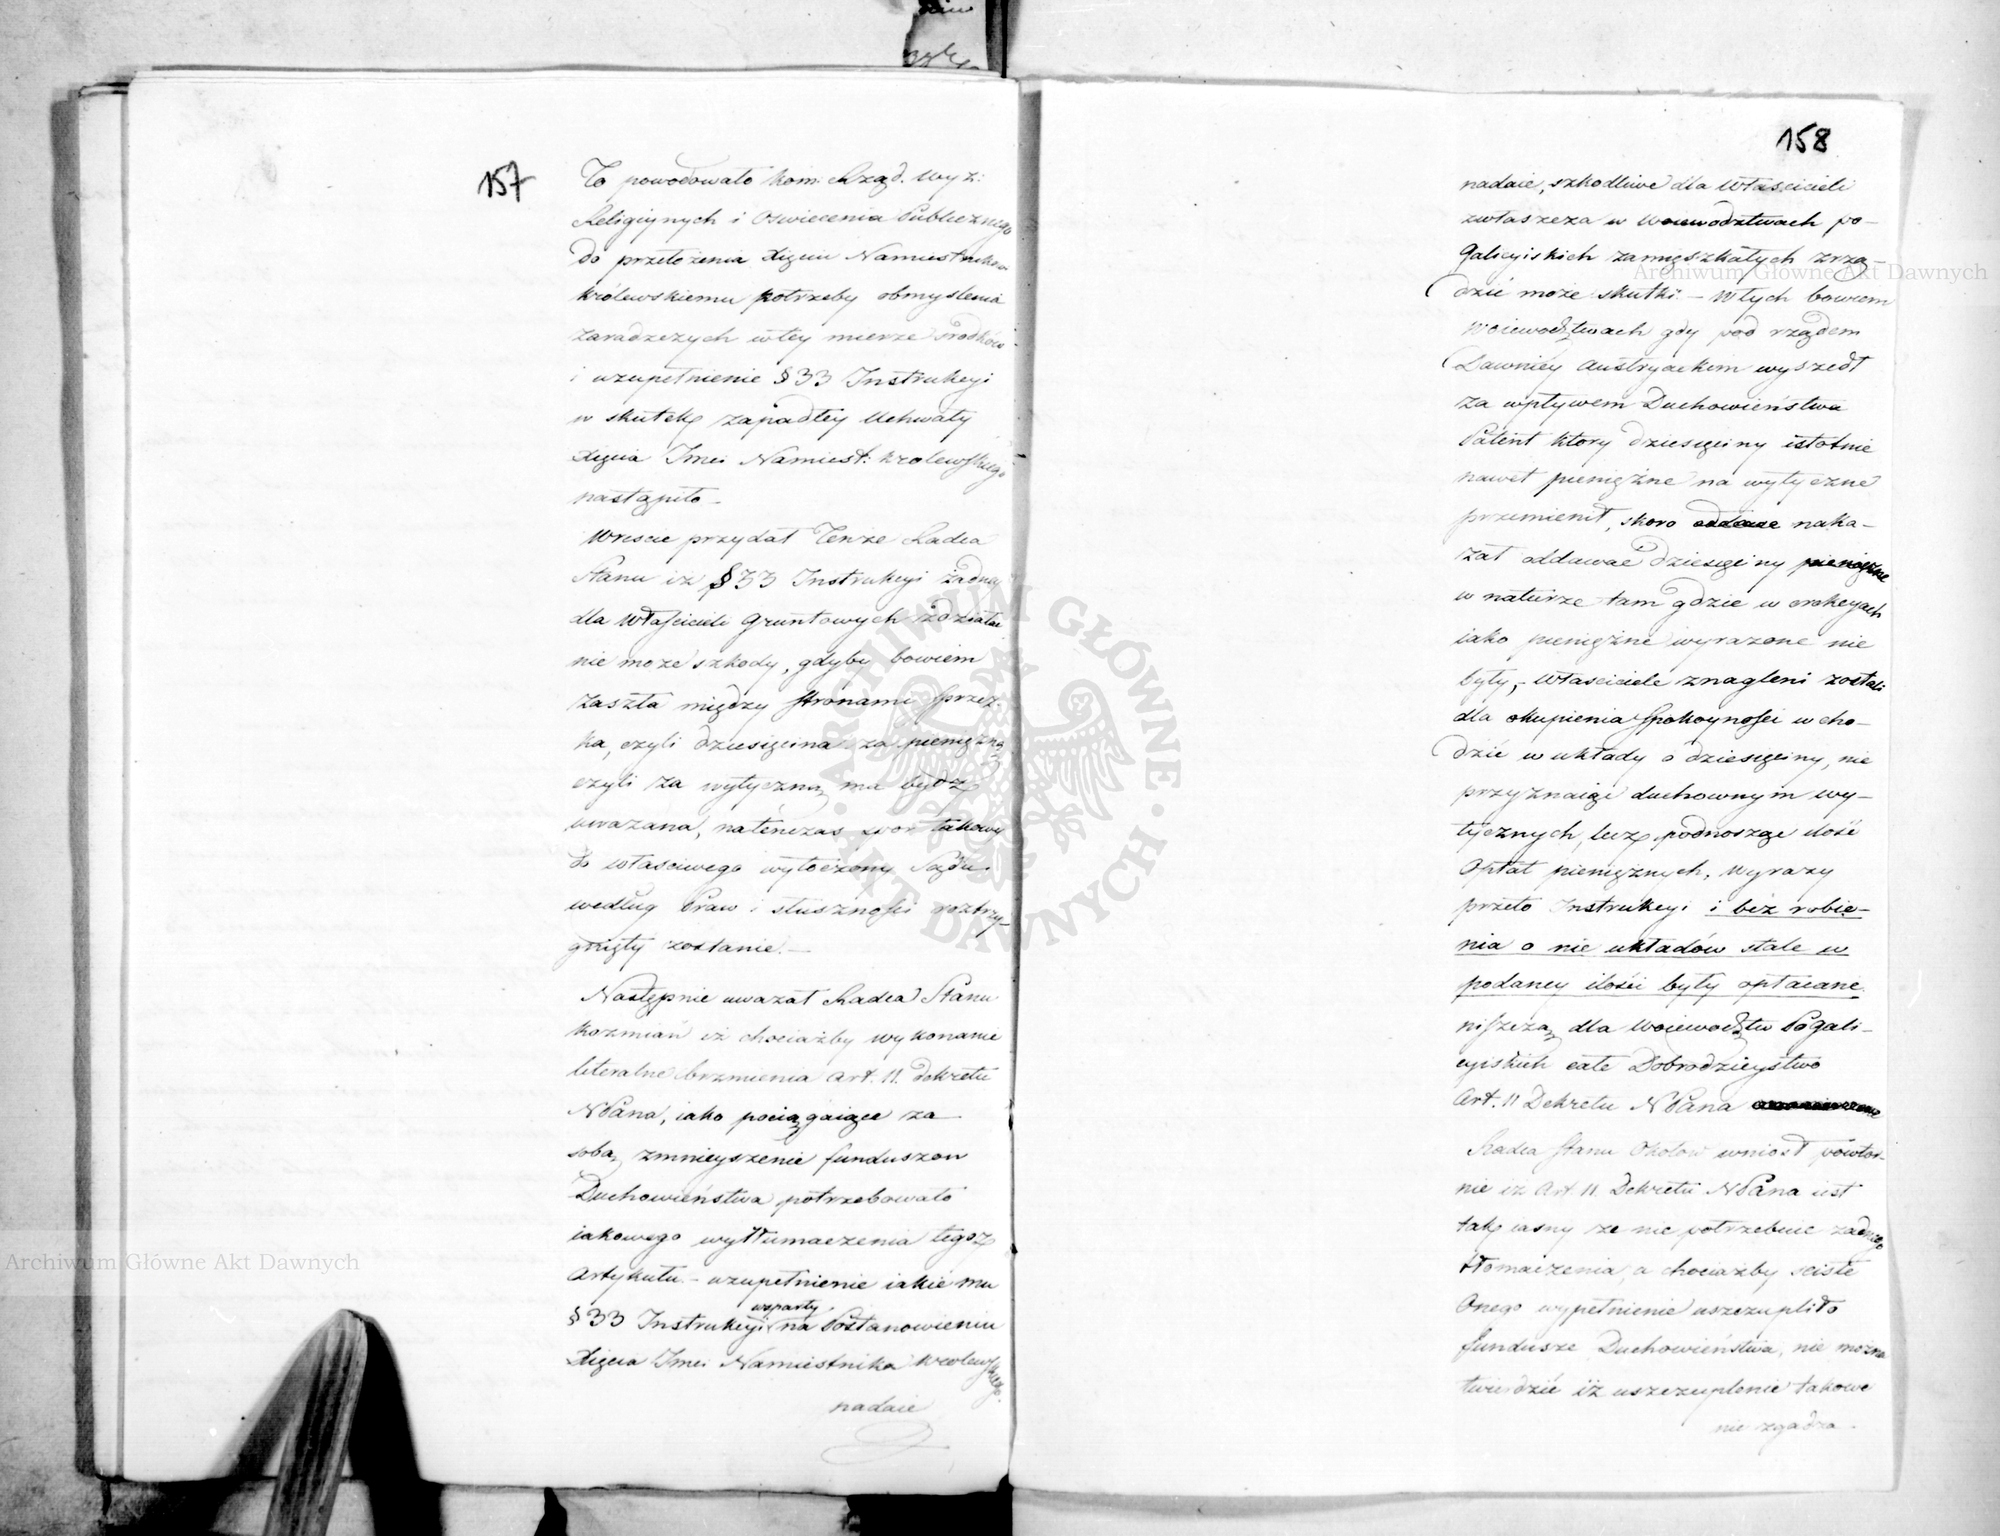 157
To powodowało Kom: Rząd. Wyz:
Religiynych i Oswiecenia Publicznego
do przełożenia Xięciu Namiestnikowi
Królewskiemu potrzeby obmyslenia
zaradczych w tey mierze srodków
i uzupełnienie § 33 Instrukcyi
w skutek zapadłey Uchwały
Xięcia Jmci Namiest: Krolewskiego
nastąpiło –
Wreście przydał Tenże Radca
Stanu iż § 33 Instrukcyi żadney
dla Właścicieli gruntowych zdziałać
nie może szkody, gdyby bowiem
zaszła między stronami sprzecz-
ka, czyli dziesięcina za pieniężną
czyli za wytyczną ma bydź
uważana, natenczas spor takowy
do właściwego wytoczony Sądu
według Praw i słuszności roztrzy-
gnięty zostanie. –
Następnie uważał Radca Stanu
Kozmian iż chociażby wykonanie
literalne brzmienia Art. 11. dekretu
NPana, iako pociągaiące za
sobą zmnieyszenie funduszow
Duchowieństwa potrzebowało
iakowego wytłumaczenia tegoż
Artykułu. – uzupełnienie iakie mu
§ 33 Instrukcyi wsparty na Postanowieniu
Xięcia Jmci Namiestnika Krolewskiego
nadaie
158
nadaie, szkodliwe dla Właścicieli
zwłaszcza w Woiewodztwach po-
galicyiskich zamięszkałych zrzą-
dzić może skutki. – W tych bowiem
Woiewodztwach gdy pod rządem
Dawniey Austryackim wyszedł
za wpływem Duchowieństwa
Patent ktory dziesięciny istotnie
nawet pieniężne na wytyczne
przemienił, skoro naka-
zał oddawać dziesięciny pieniężne
w naturze tam gdzie w erekcyach
iako pieniężne wyrażone nie
były, – Właściciele znagleni zostali
dla okupienia spokoyności wcho-
dzić w układy o dziesięciny, nie
przyznaiąc duchownym wy-
tycznych, lecz podnosząc ilość
opłat pieniężnych. Wyrazy
przeto Instrukcyi i beż robie-
nia o nie układów stale w
podaney ilości były opłacane
niszczą dla Woiewodztw Pogali-
cyiskich całe Dobrodzieystwo
Art. 11 Dekretu NPana
Radca Stanu Okołow wniosł powtor-
nie iż Art. 11. Dekretu NPana iest
tak iasny że nie potrzebuie żadnego
tłomaczenia, a chociażby sciste
Onego wypełnienie uszczupliło
fundusze Duchowieństwa, nie można
twierdzić iż uszczuplenie takowe
nie zgadza
Archiwum Główne Akt Dawnych
Archiwum Główne Akt Dawnych
ARCHIWUM GŁÓWNE · AKT DAWNYCH ·